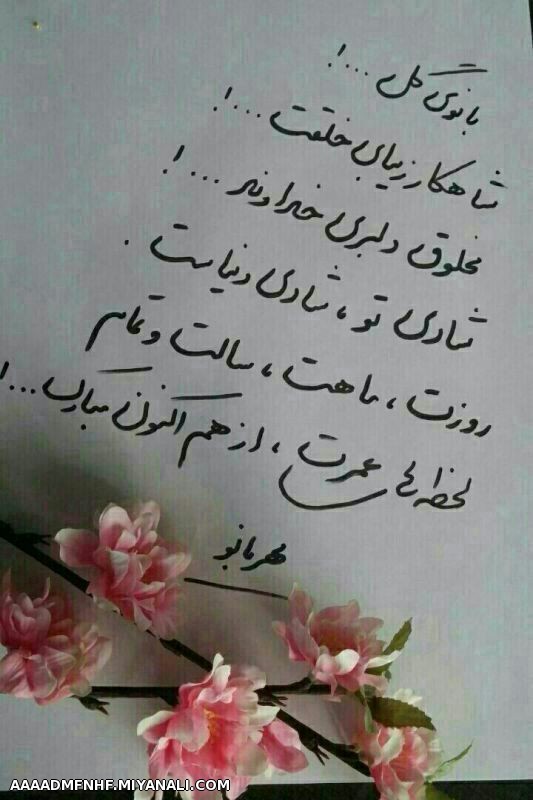 بانوی گل ...!
شاهکار زیبای خلقت ...!
مخلوق دلبری خداوند ...!
شادی تو ، شادی دنیاست .
روزت ، ماهت ، سالت و تمام
لحظه های عمرت ، از هم اکنون مبارک ...!
مهربانو
AAAADMFNHF.MIYANALI.COM